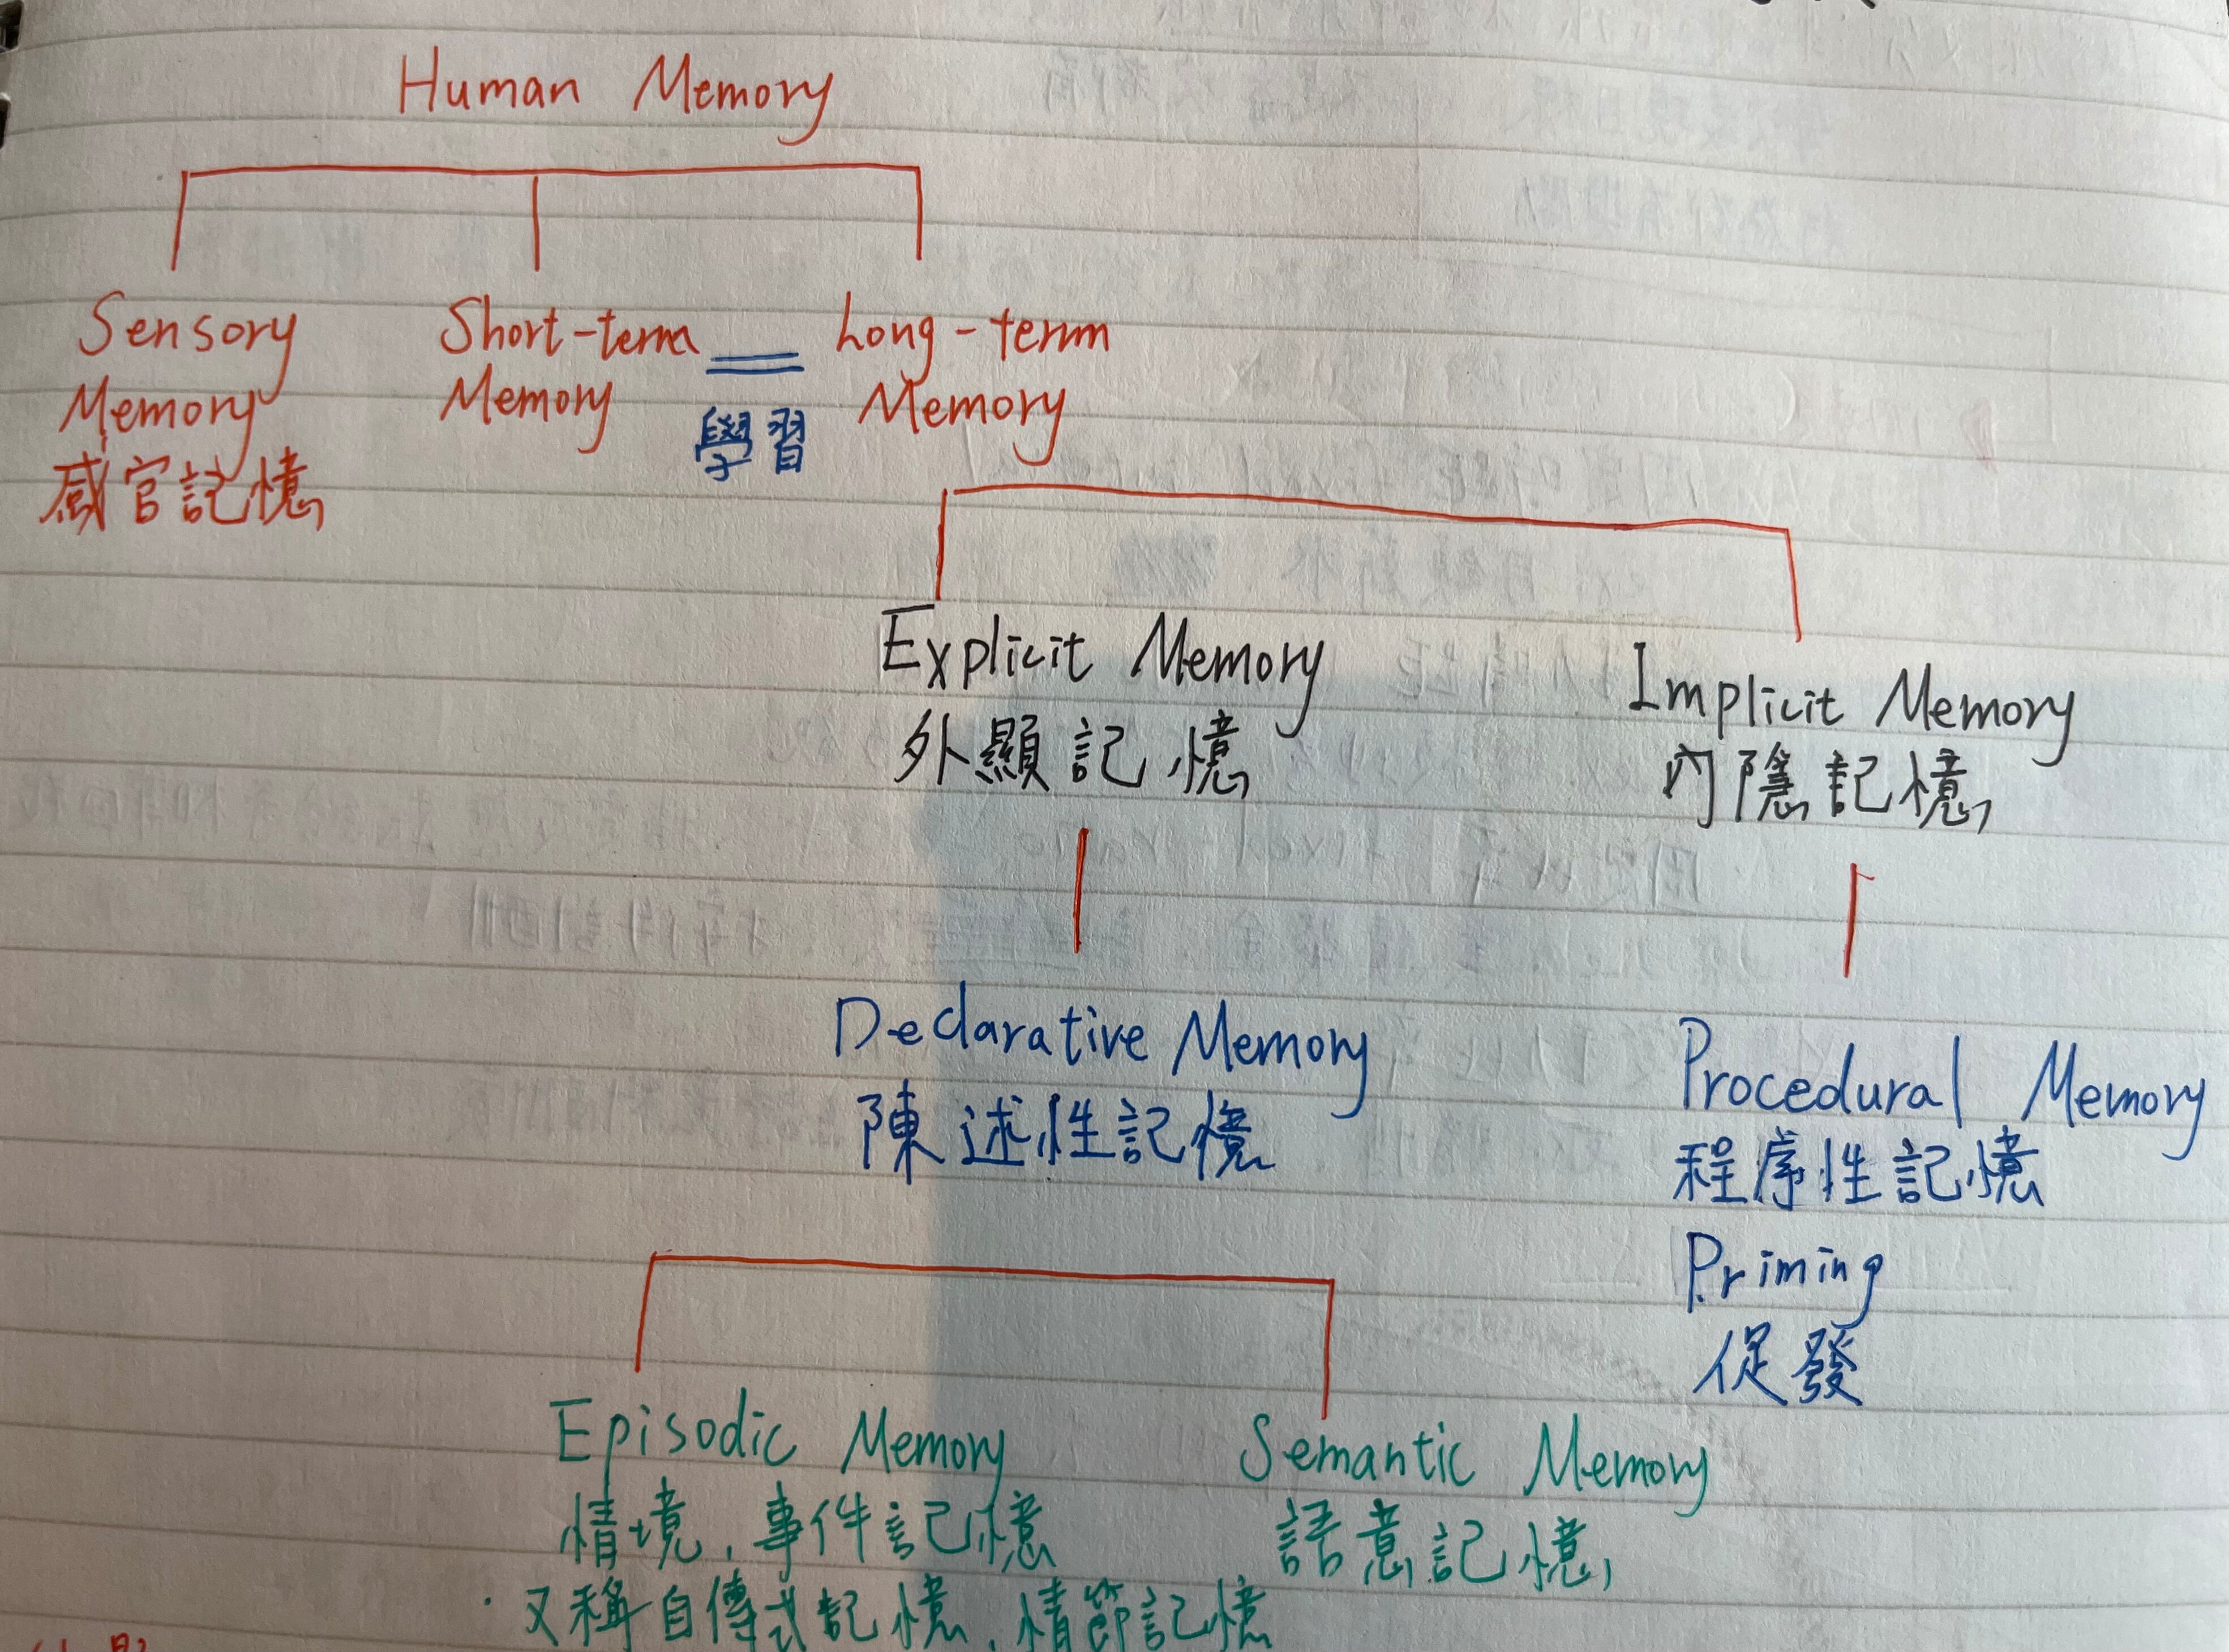 Human Memory
Sensory Memory
感官記憶
Short-term Memory
學習
Long-term Memory
Explicit Memory
外顯記憶
Implicit Memory
內隱記憶
Declarative Memory
陳述性記憶
Procedural Memory
程序性記憶
Priming
促發
Episodic Memory
情境，事件記憶
·又稱自傳式記憶，情節記憶
Semantic Memory
語意記憶